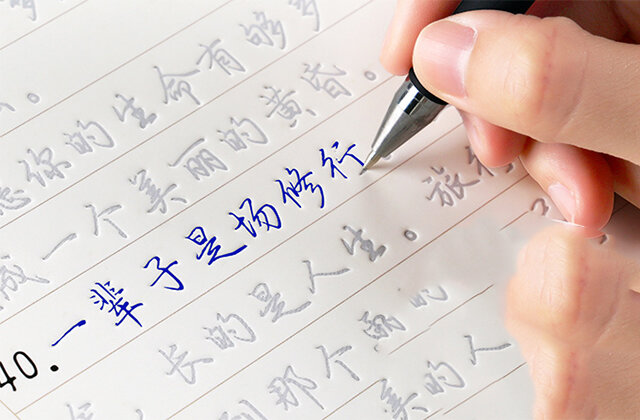 愿你的生命有够多
成一个美丽的黄昏。
40.一辈子是场修行
长的是人生。旅行
到那个雨的
美的人